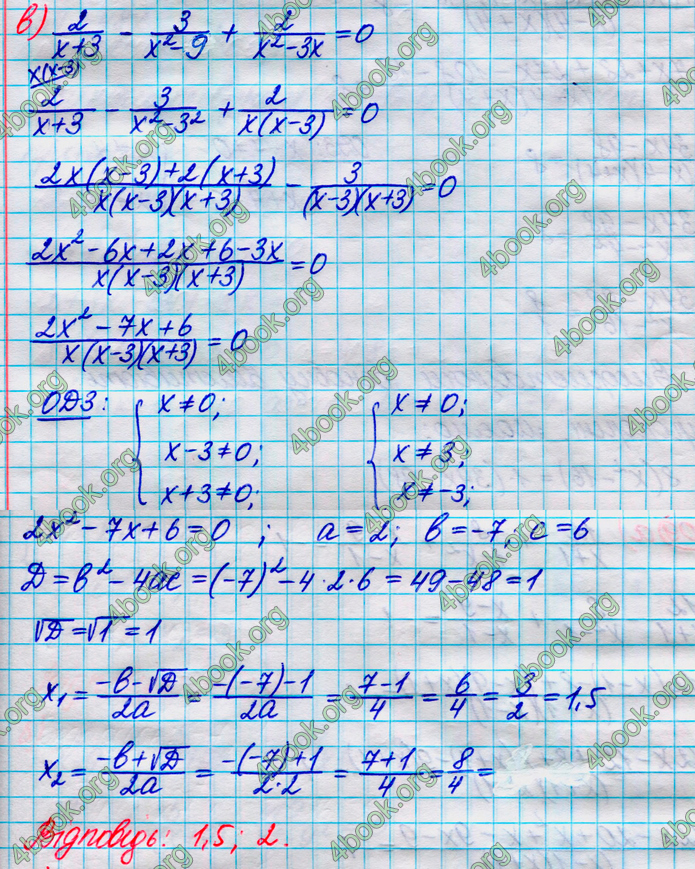 в) 2/(x+3) - 3/(x²-9) + 2/(x²-3x) = 0
x(x-3)
2/(x+3) - 3/(x²-3²) + 2/(x(x-3)) = 0
(2x(x-3)+2(x+3))/(x(x-3)(x+3)) - 3/((x-3)(x+3)) = 0
(2x²-6x+2x+6-3x)/(x(x-3)(x+3)) = 0
(2x²-7x+6)/(x(x-3)(x+3)) = 0
ОДЗ: { x≠0; { x≠0;
x-3≠0; x≠3;
x+3≠0; x≠-3;
2x²-7x+6=0 ; a=2; b=-7; c=6
D=b²-4ac=(-7)²-4·2·6=49-48=1
√D=√1=1
x₁=(-b-√D)/(2a)=(-(-7)-1)/(2a)=(7-1)/4=6/4=3/2=1,5
x₂=(-b+√D)/(2a)=(-(-7)+1)/(2·2)=(7+1)/4=8/4=
Відповідь: 1,5; 2.
4book.org